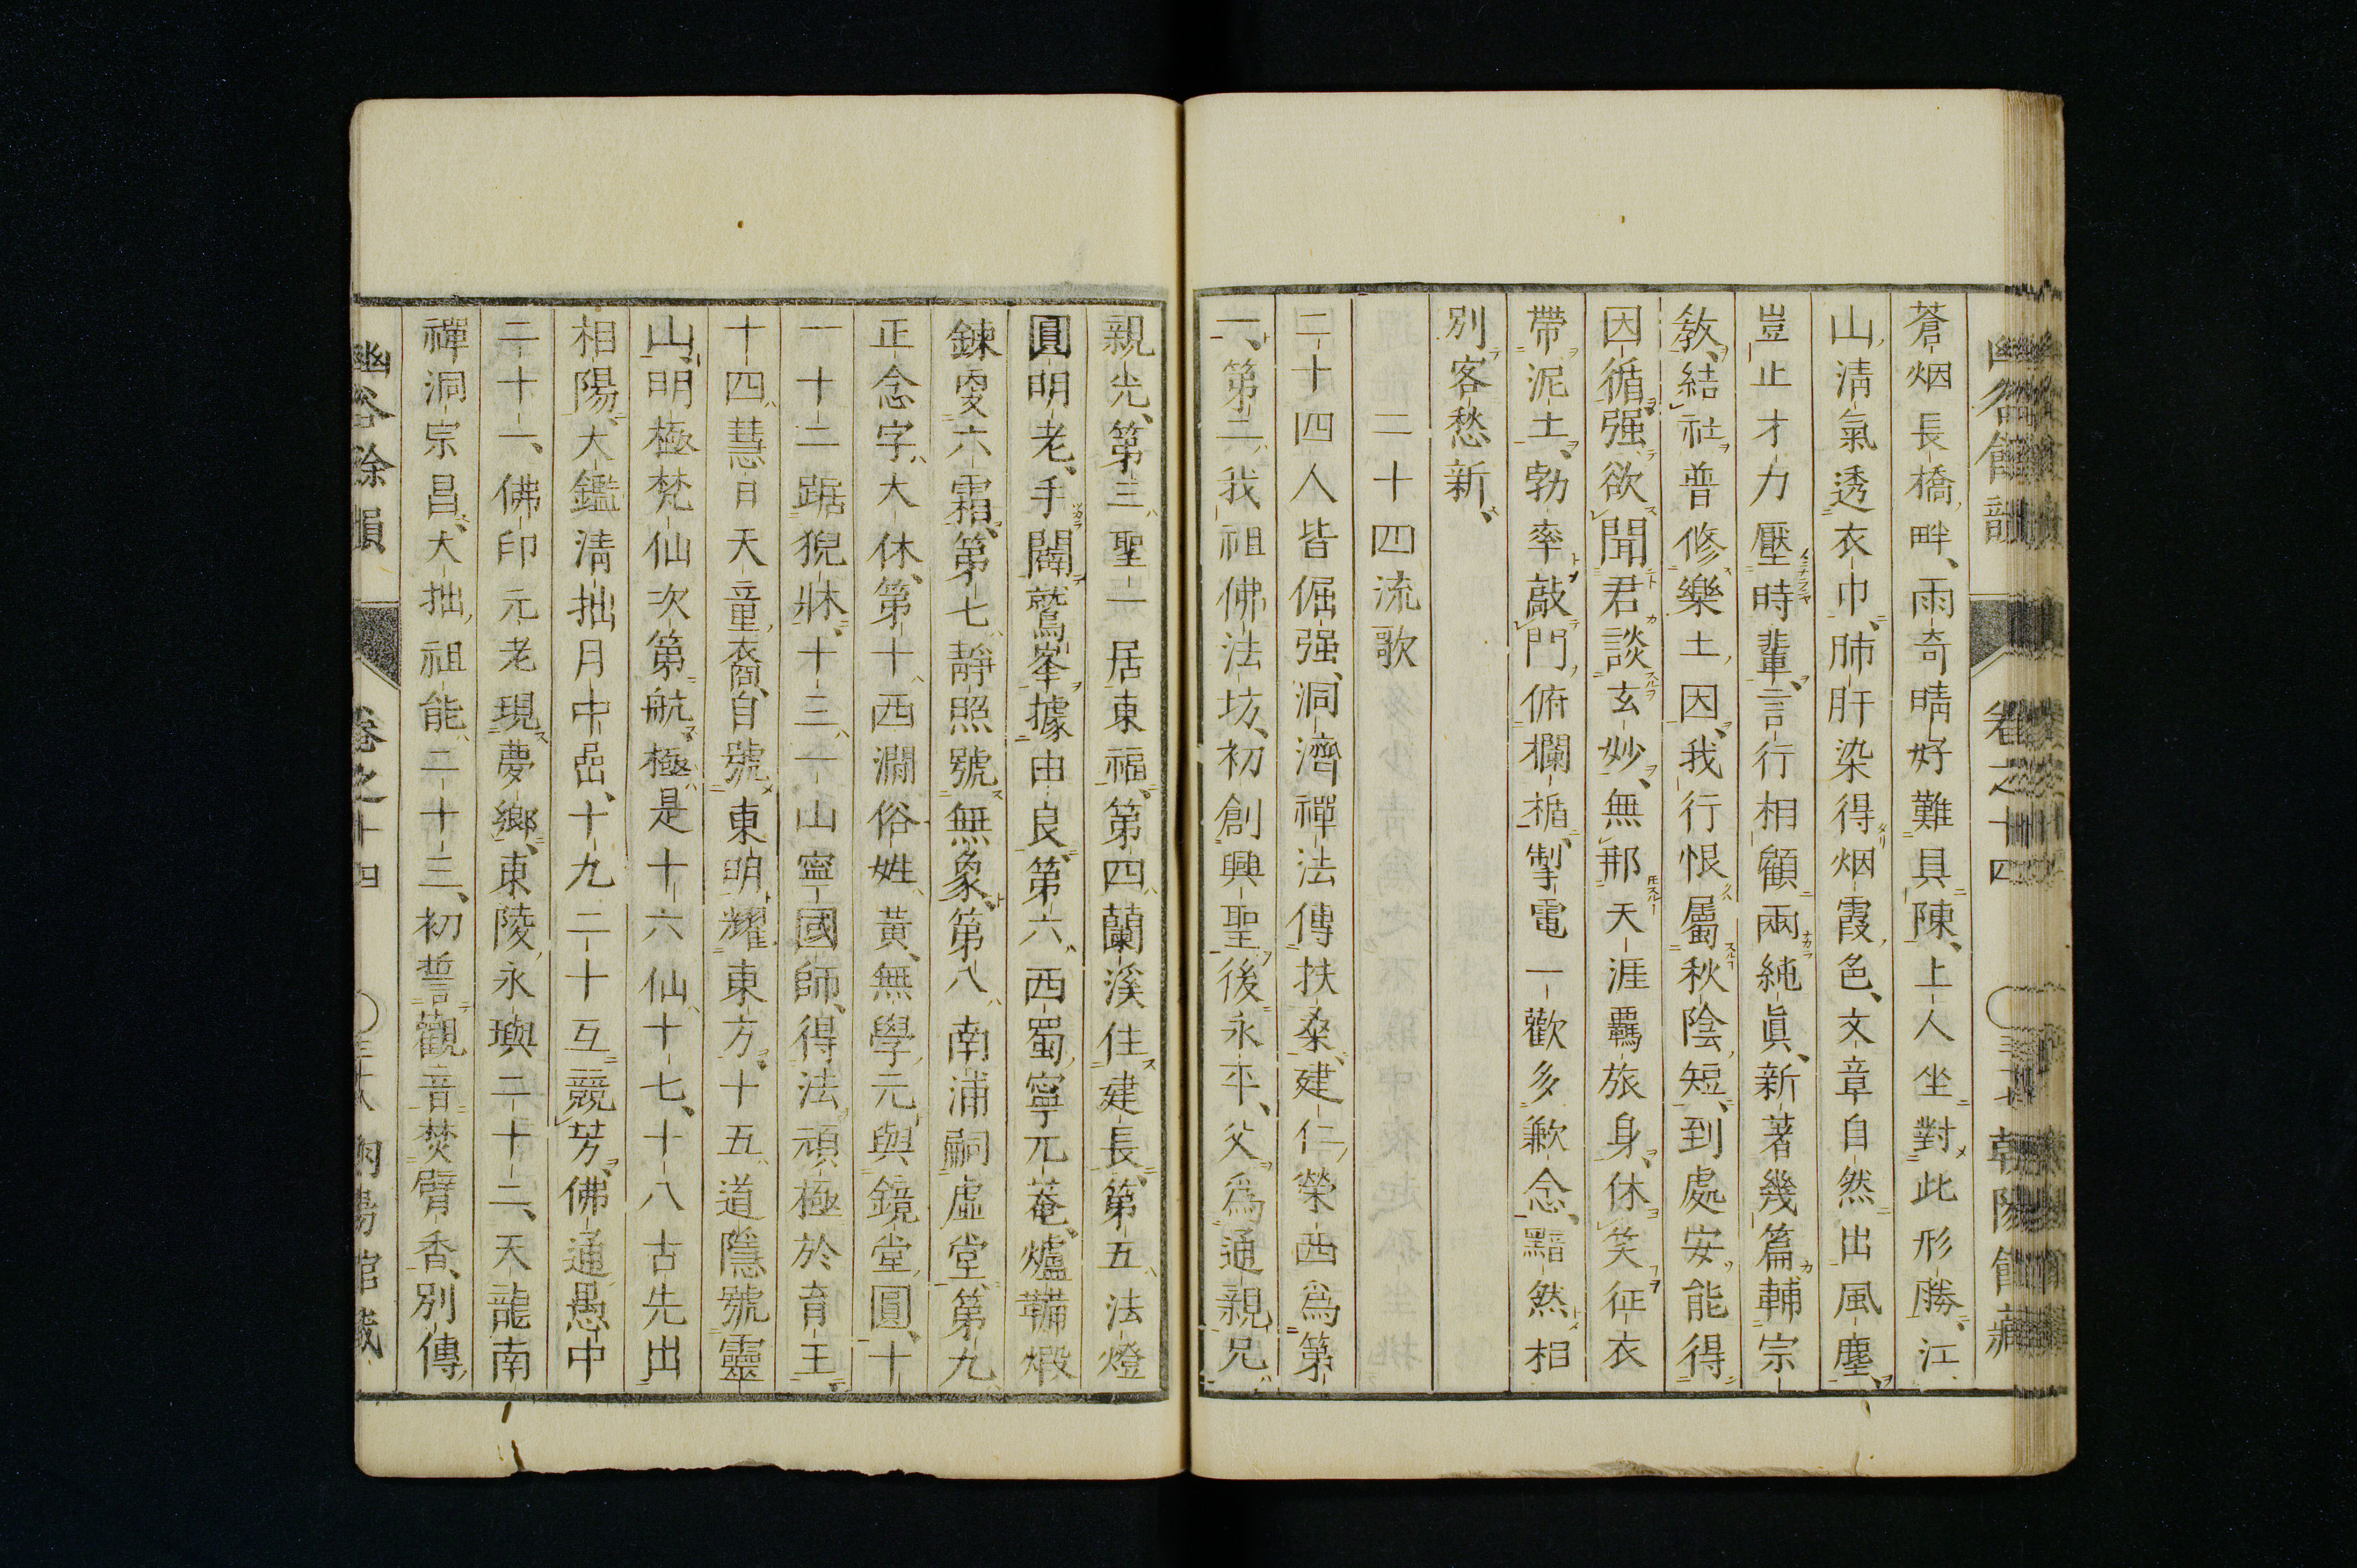 蒼烟長橋畔、雨奇晴好難具陳、上人坐對此形勝、江
山淸氣透衣巾、肺肝染得烟霞色、文章自然出風塵、
豈止才力壓時輩、言行相顧兩純眞、新著幾篇輔宗
敎、結社普修樂土因、我行恨屬秋陰短、到處安能得
因循、强欲聞君談玄妙、無那天涯羈旅身、休笑征衣
帶泥土、勃率敲門俯欄楯、掣電一歡多歉念、黯然相
別客愁新、
二十四流歌
二十四人皆倔强、洞濟禪法傳扶桑、建仁榮西爲第
一、第二我祖佛法坊、初創興聖後永平、父爲通親兄
親光、第三聖一居東福、第四蘭溪住建長、第五法燈
圓明老、手闢鷲峯據由良、第六西蜀寧兀菴、爐鞴煅
鍊叓六霜、第七靜照號無象、第八南浦嗣虛堂、第九
正念字大休、第十西澗俗姓黃、無學元與鏡堂圓、十
一十二踞猊牀、十三一山寧國師、得法頑極於育王、
十四慧日天童裔、自號東明耀東方、十五道隱號靈
山、明極梵仙次第航、極是十六仙十七、十八古先出
相陽、大鑑淸拙月中嵒、十九二十互競芳、佛通愚中
二十一、佛印元老現夢鄉、東陵永璵二十二、天龍南
禪洞宗昌、大拙祖能二十三、初誓觀音焚臂香、別傳
幽谷餘韻 卷之十四 朝陽館藏